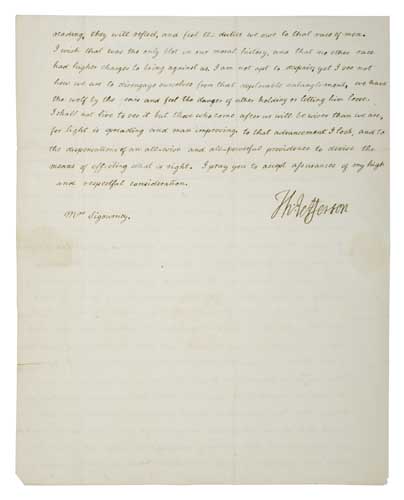 reading, they will reflect, and feel the duties we owe to that race of men.
I wish that was the only blot in our moral history, and that no other race
had higher charges to bring against us. I am not apt to despair; yet I see not
how we are to disengage ourselves from that deplorable entanglement, we have
the wolf by the ears and feel the danger of either holding or letting him loose.
I shall not live to see it but those who come after us will be wiser than we are,
for light is spreading and man improving. to that advancement I look, and to
the dispensations of an all-wise and all-powerful providence to devise the
means of effecting what is right. I pray you to accept assurances of my high
and respectful consideration.
Th: Jefferson
Mrs Sigourney.